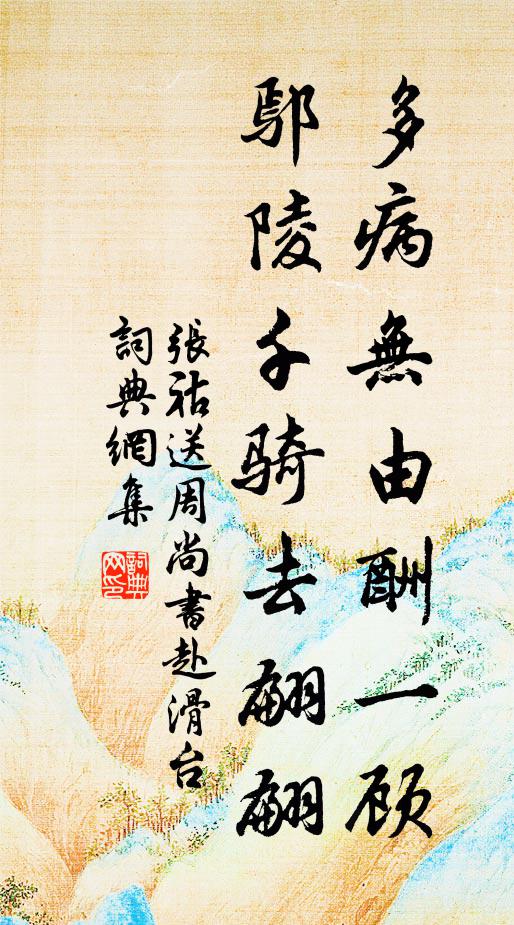 多病無由酬一顾
鄢陵千騎去翩翩
張祜送周尚書赴滑台
詞典網集
詞典网印